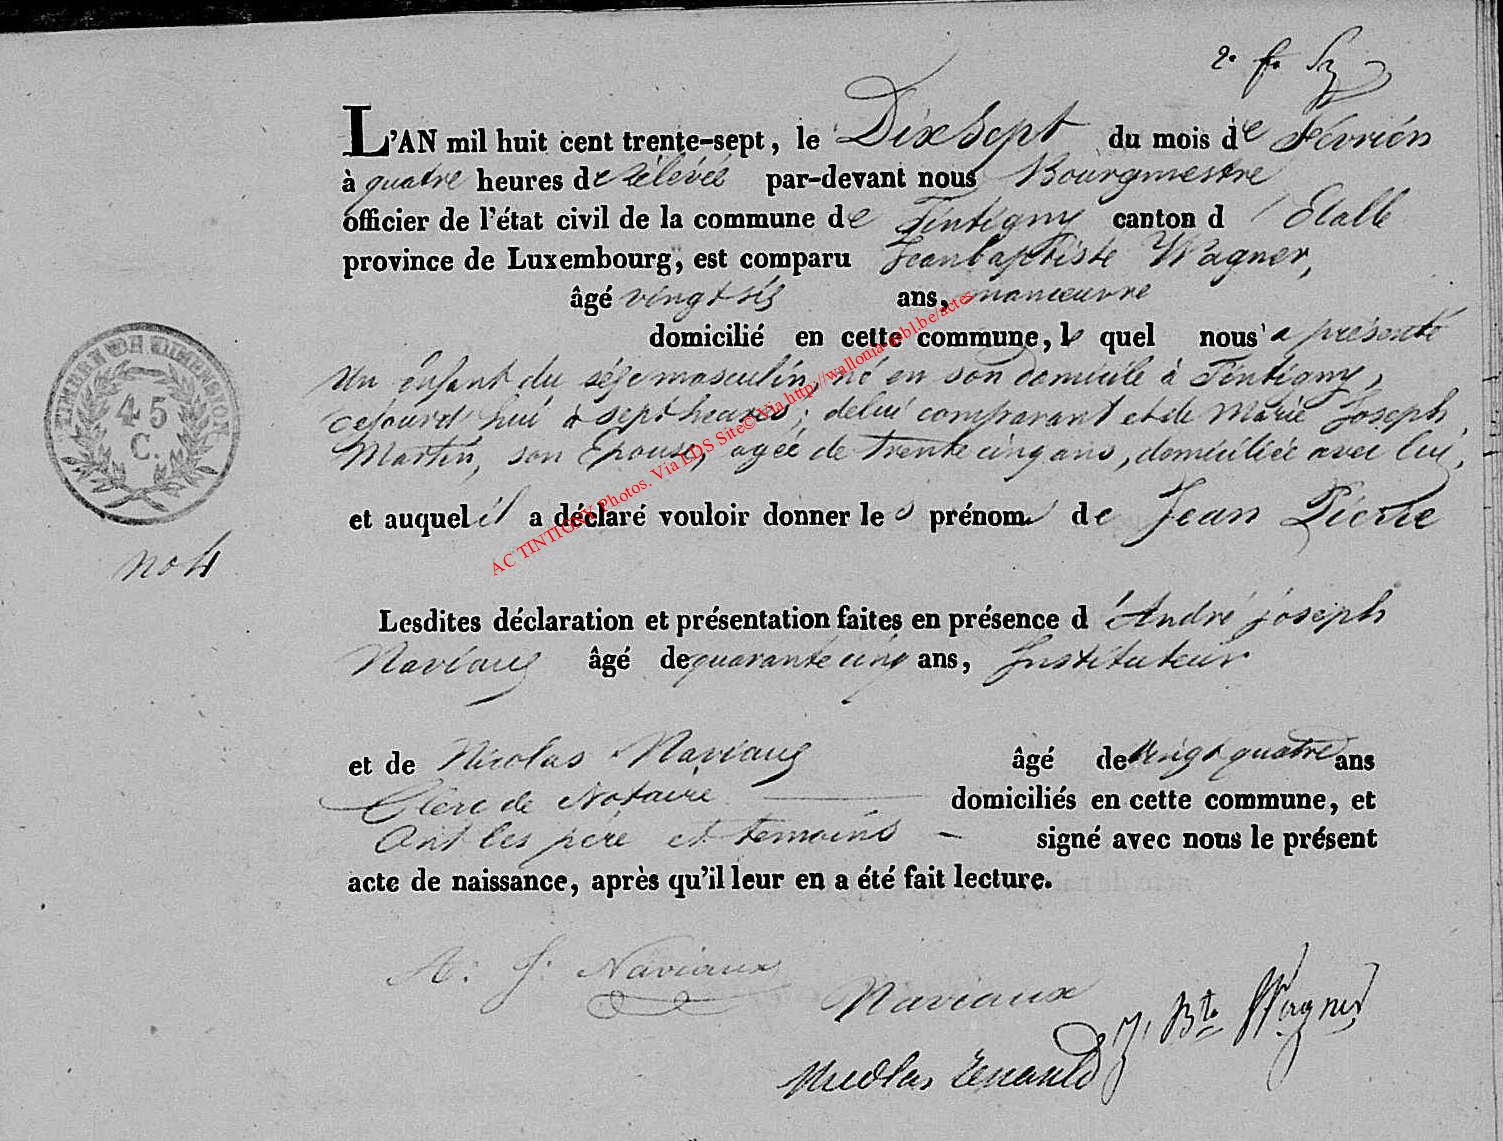 2. f.
L'AN mil huit cent trente-sept, le Dix Sept du mois de Février
à quatre heures de rélévée par-devant nous Bourgmestre
officier de l'état civil de la commune de Tintigny canton d'Etalle
province de Luxembourg, est comparu Jean baptiste Wagner,
âgé vingt six ans, manœuvre
domicilié en cette commune, le quel nous a présenté
un enfant du séxe masculin, né en son domicile à Tintigny,
cejourd'hui à sept heures; delui comparant et de Marie Joseph
Martin, son Epouse, agée de trente cinq ans, domiciliée avec lui,
et auquel il a déclaré vouloir donner les prénoms de Jean Pierre
Lesdites déclaration et présentation faites en présence d'André joseph
Naviaux âgé de quarante cinq ans, Instituteur
et de Nicolas Naviaux âgé de vingt quatre ans
Clerc de Notaire domiciliés en cette commune, et
Ont les pére et temoins signé avec nous le présent
acte de naissance, après qu'il leur en a été fait lecture.
A: J: Naviaux
Naviaux
J. Bte Wagner
Nicolas Renauld
TIMBRE DE DIMENSION
45
C.
no 4
AC TINTIGNY Photos. Via LDS Site© Via http://wallonia-asbl.be/actes